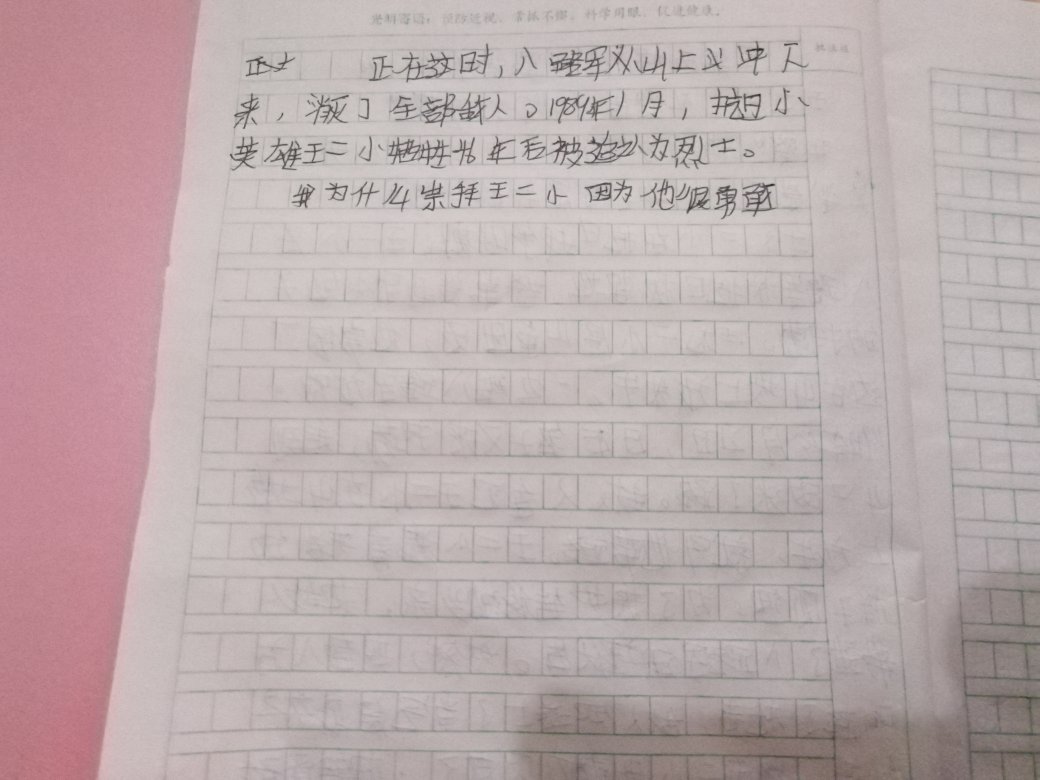 爱眼寄语：预防近视，常抓不懈，科学用眼，促进健康。
正 正在这时，八路军从山上冲下
来，消灭了全部敌人。1989年1月，抗日小
英雄王二小牺牲46年后被追认为烈士。
我为什么崇拜王二小因为他很勇敢